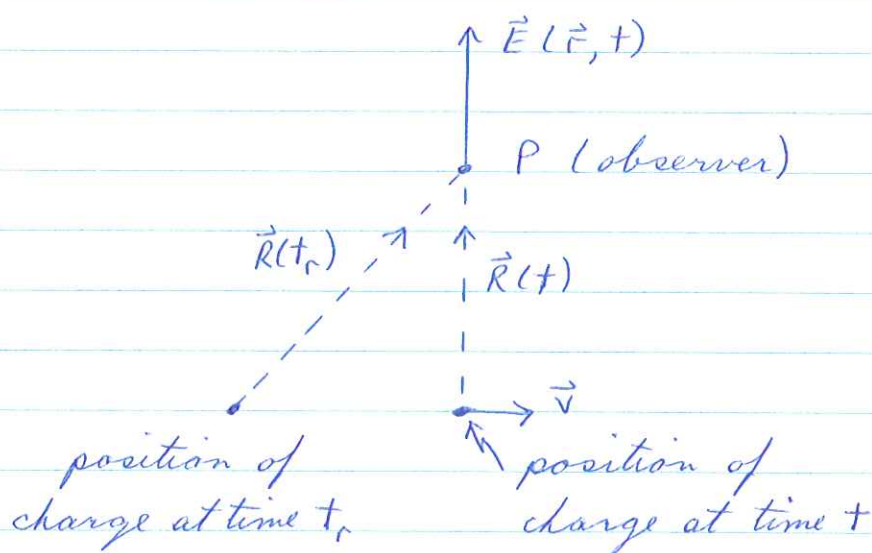 E⃗(r⃗, t)
P (observer)
R⃗(tᵣ)
R⃗(t)
v⃗
position of
charge at time tᵣ
position of
charge at time t